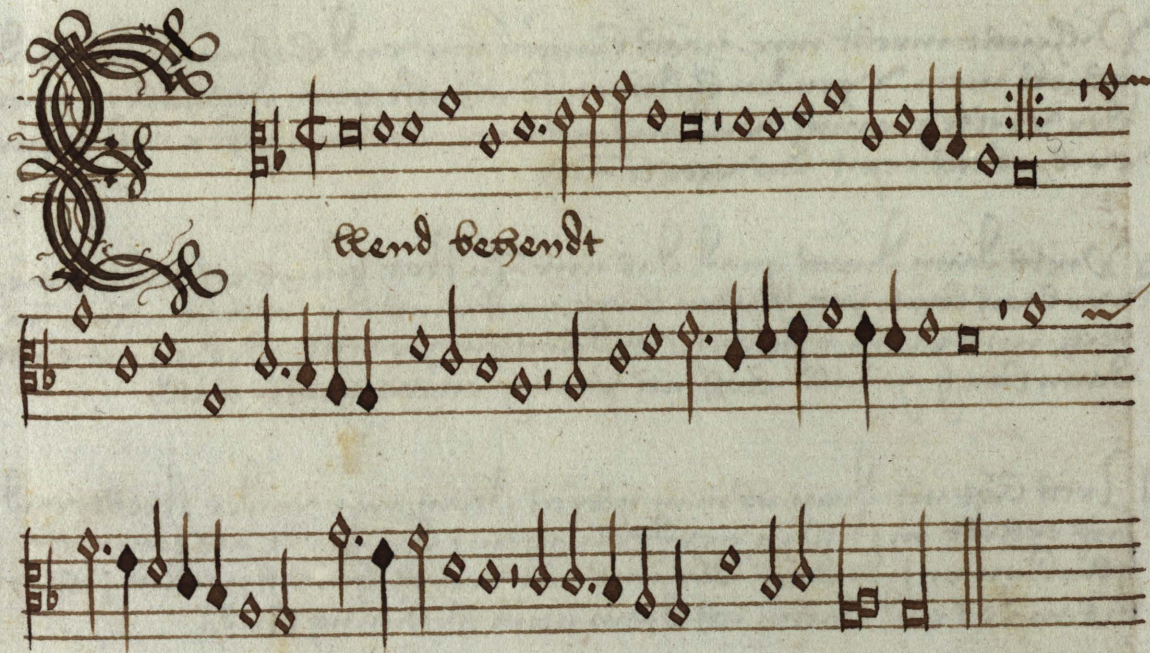 Ellend behendt